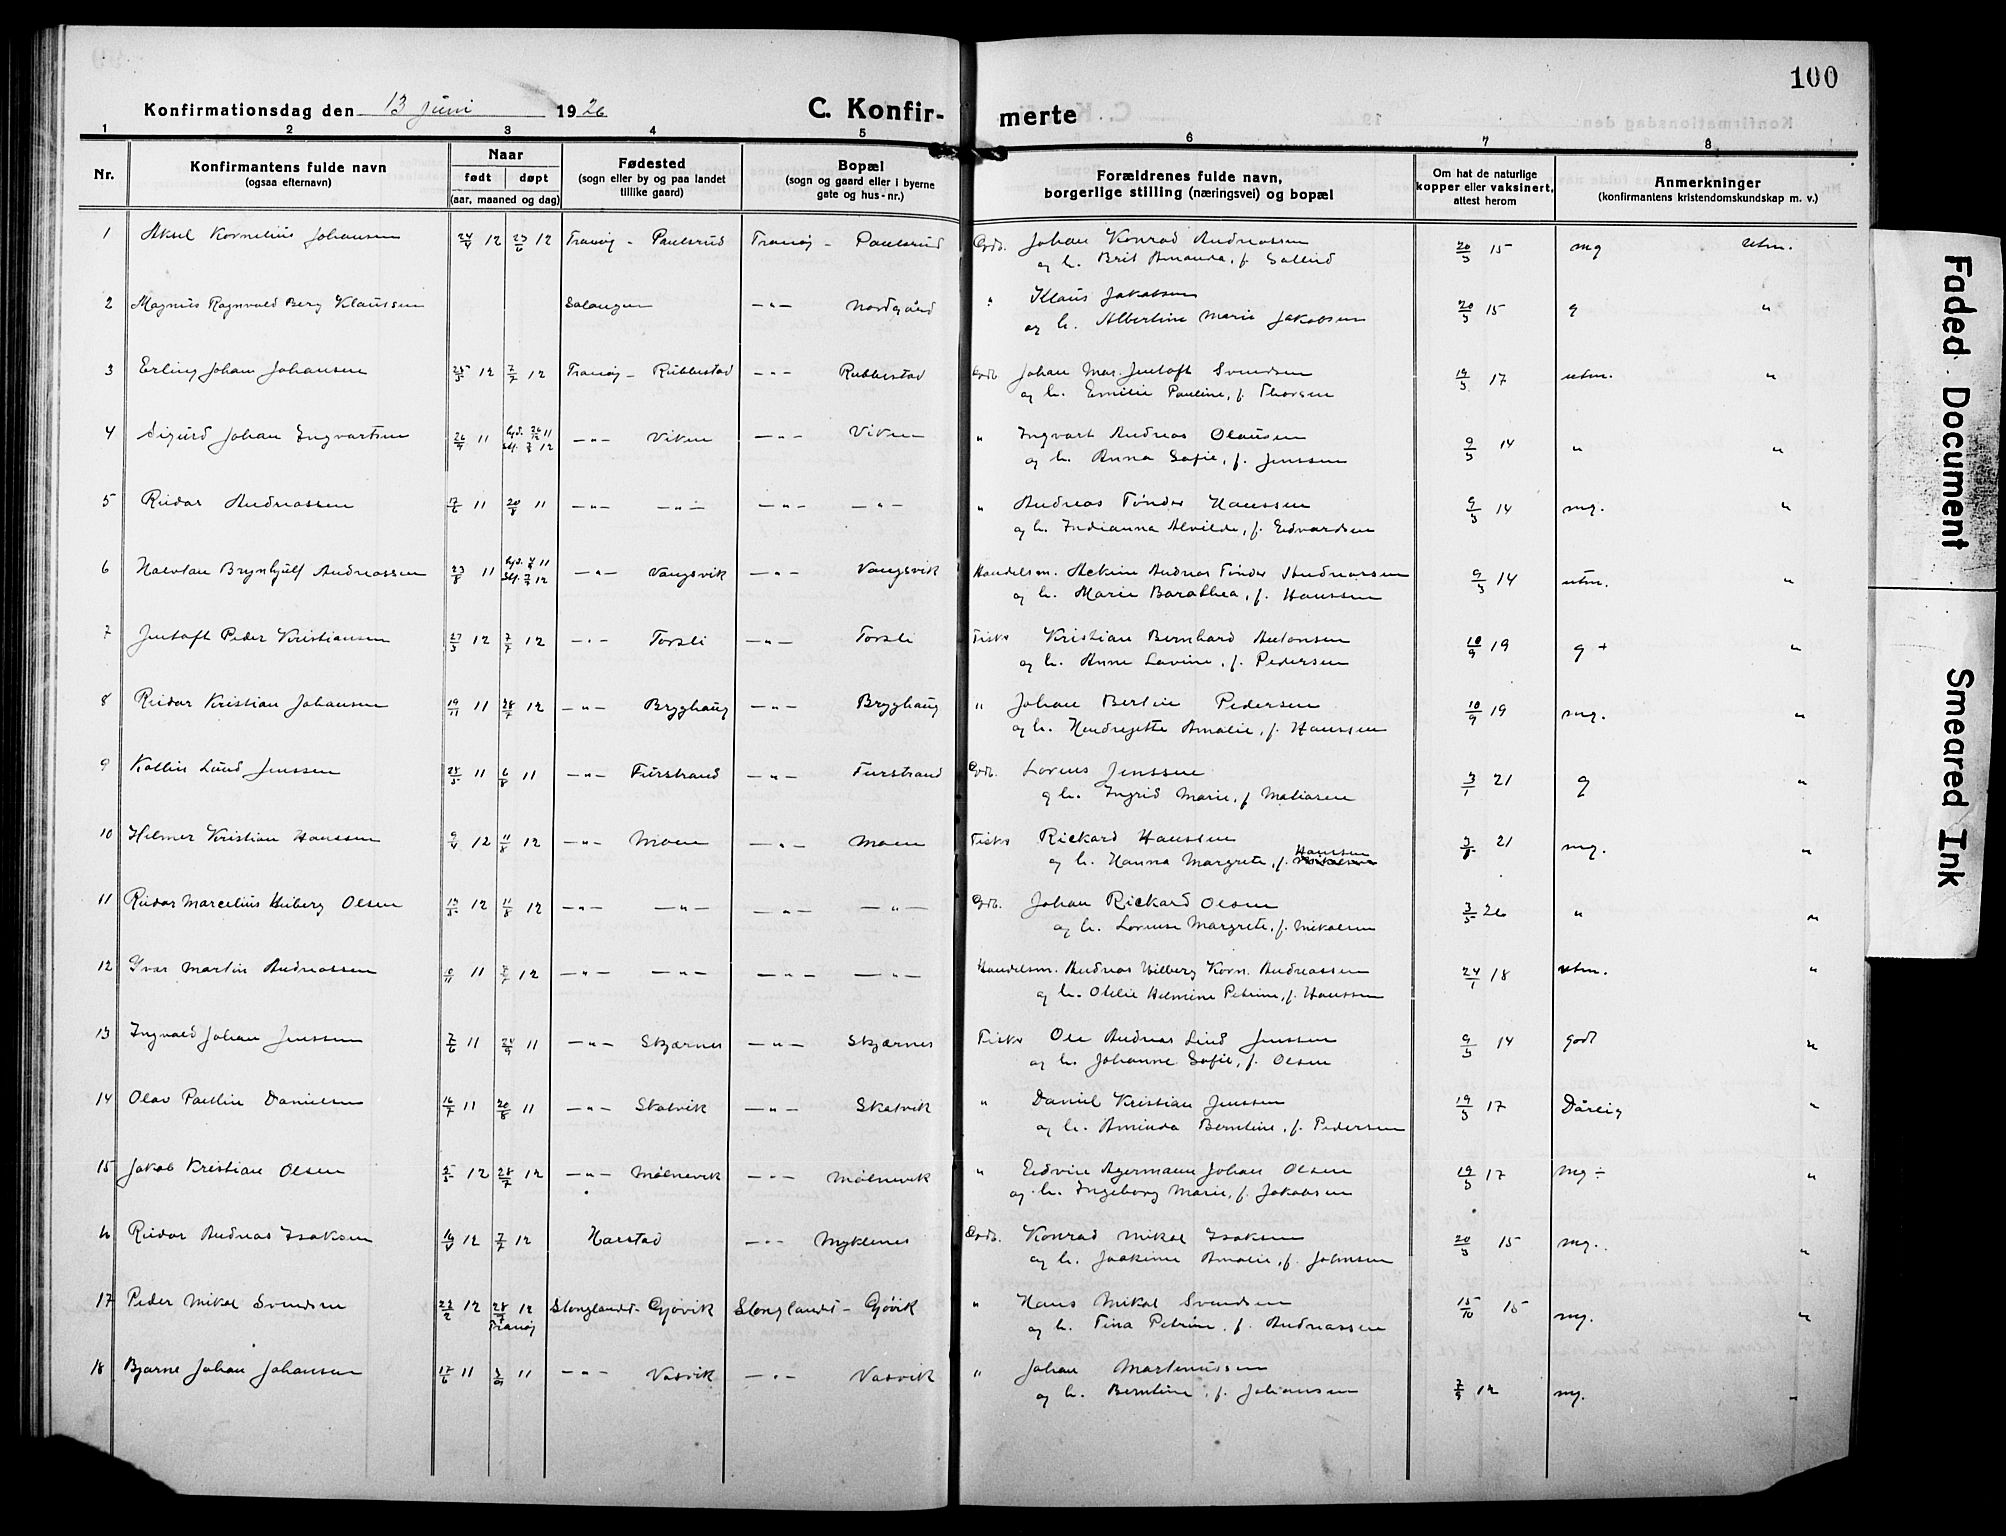 100
Konfirmationsdag den 13 Juni 1926 C. Konfir- merte
1 2 3 4 5 6 7 8
Nr. Konfirmantens fulde navn (ogsaa efternavn) Naar født døpt (aar, maaned og dag) Fødested (sogn eller by og paa landet tillike gaard) Bopæl (sogn og gaard eller i byerne gate og hus-nr.) Forældrenes fulde navn, borgerlige stilling (næringsvei) og bopæl Om hat de naturlige kopper eller vaksinert, attest herom Anmerkninger (konfirmantens kristendomskundskap m. v.)
1 Aksel Kornelius Johansen 24/4 12 23/6 12 Tranøy - Paulsrud Tranøy - Paulsrud Gdb. Johan Konrad Andreassen 20/3 15 mg utm.
og h. Brit Amanda, f.
2 Magnus Ragnvald Berg Klaussen Salangen -"- Nordgård " Klaus Jakobsen 20/3 15 g "
og h. Albertine Marie Jakobsen
3 Erling Johan Johansen 25/3 12 7/7 12 Tranøy - Rubbestad -"- Rubbestad Gdb. Johan Mar. Jentoft Svendsen 19/3 17 utm. "
og h. Emilie Pauline, f. Thorsen
4 Sigurd Johan Ingvartsen 26/9 11 hjd. 26/12 11 -"- Viken -"- Viken " Ingvart Andreas Olausen 9/3 14 " "
stf. 7/7 12 og h. Anna Sofie, f. Jenssen
5 Reidar Andreassen 17/6 11 20/8 11 -"- -"- -"- -"- " Andreas Tønder Hanssen 9/3 14 mg. "
og h. Indianna Alvilde, f. Edvardsen
6 Halvdan Brynhjulf Andreassen 23/8 11 hjd. 11 -"- Vangsvik -"- Vangsvik Handelsm. Andreas Tønder Andreassen 9/3 14 utm. "
stf. 7/7 12 og h. Marie Barathea, f. Hanssen
7 Jentoft Peder Kristiansen 27/3 12 7/7 12 -"- Torsli -"- Torsli Fisker Kristian Bernhard Antonsen 10/9 19 g + "
og h. Anne Lavine, f. Pedersen
8 Reidar Kristian Johansen 19/11 11 28/7 12 -"- Brygghaug -"- Brygghaug " Johan Bertin Pedersen 10/9 19 mg. "
og h. Hendrejette Amalie, f. Hanssen
9 Kollin Lund Jenssen 28/5 11 6/8 11 -"- Furstrand -"- Furstrand Gdb. Lorens Jenssen 3/1 21 g "
og h. Ingrid Marie, f. Matiasen
10 Helmer Kristian Hanssen 9/4 12 11/8 12 -"- Moen -"- Moen Fisker Rickard Hanssen 21 mg. "
og h. Hanna Margrete, f. Hanssen
11 Reidar Marcelius Heiberg Olsen 12 11/8 12 -"- -"- -"- -"- Gdb. Johan Rickard Olsen 3/5 26 " "
og h. Lovise Margrete, f. Mikalsen
12 Ivar Martin Andreassen 11 7/7 12 -"- -"- -"- -"- Handelsm. Andreas Wilberg Korn. Andreassen 24/1 18 utm. "
og h. Otelie Helmine Petrine, f. Hanssen
13 Ingvald Johan Jenssen 7/6 11 24/9 11 -"- Skjærnes -"- Skjærnes Fisker Ole Andreas Lind Jenssen 9/3 14 godt "
og h. Johanne Sofie, f. Olsen
14 Olav Paulin Danielsen 16/7 11 20/8 11 -"- Skatvik -"- Skatvik " Daniel Kristian Jenssen 19/3 17 Dårlig "
og h. Aminda Berntine, f. Pedersen
15 Jakob Kristian Olsen 5/5 12 28/7 12 -"- Mølnevik -"- Mølnevik " Edvin Agermann Johan Olsen 19/3 17 mg ÷ "
og h. Ingeborg Marie, f. Jakobsen
16 Reidar Andreas Isaksen 12 7/7 12 Harstad -"- Myklenes Gdb. Konrad Mikal Isaksen 20/3 15 mg. "
og h. Joakime Amalie, f. Johnsen
17 Peder Mikal Svendsen 22/2 12 28/7 12 Stonglandet - Gjøvik Stonglandet - Gjøvik " Hans Mikal Svendsen 15/10 15 mg. "
Tranøy og h. Tina Petrine, f. Andreassen
18 Bjarne Johan Johansen 17/6 11 11 -"- Vasvik -"- Vasvik " Johan Martinussen 7/9 12 mg. "
og h. Berntine, f. Johansen
Faded Document
Smeared Ink